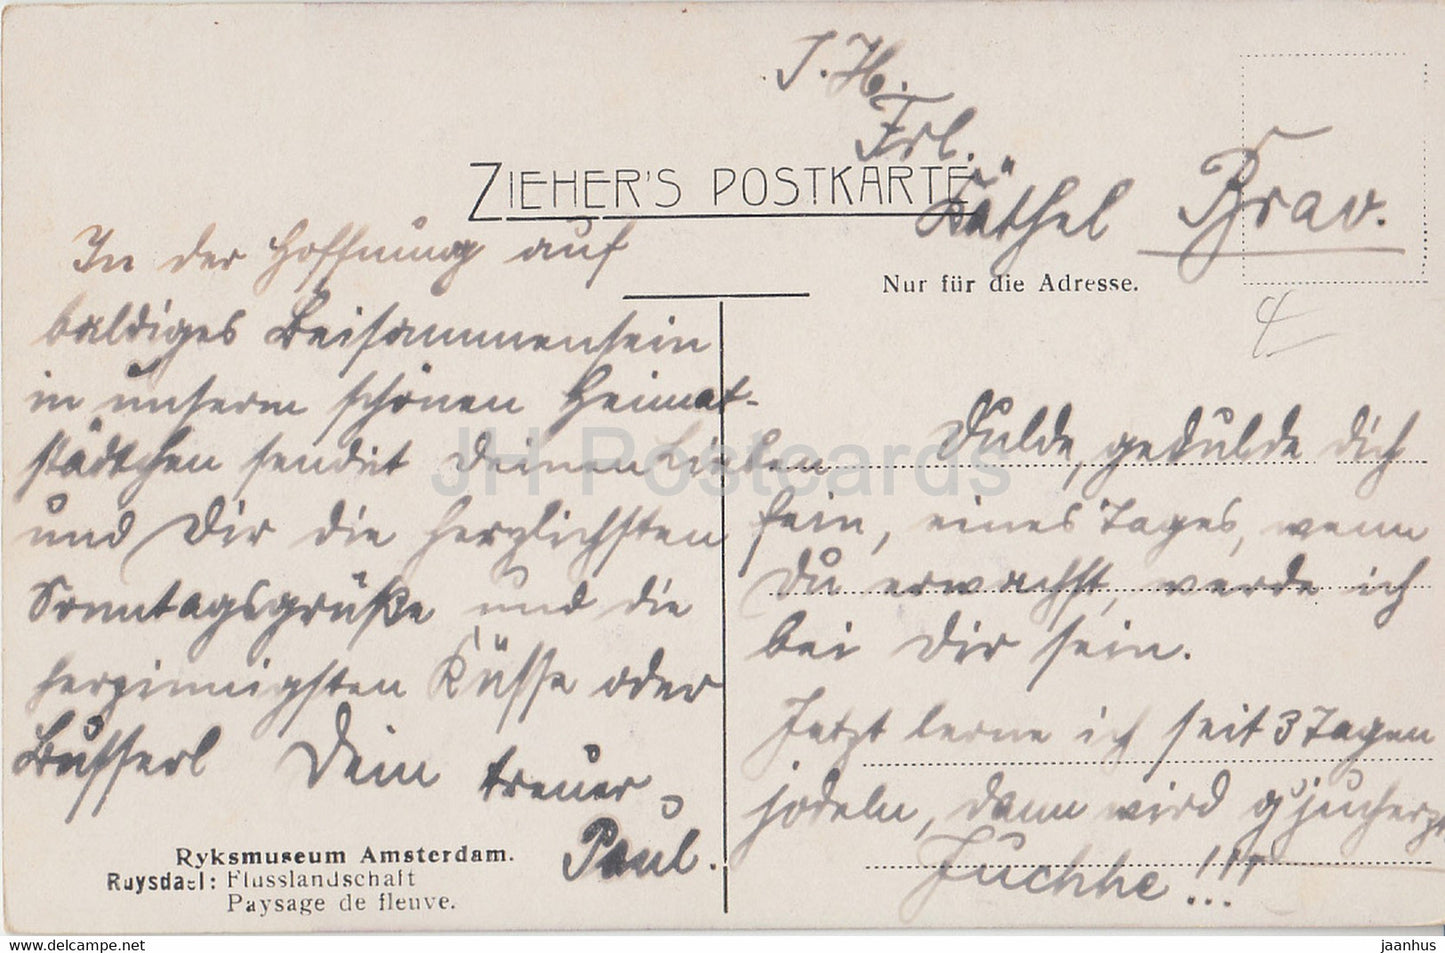 J. H.
Frl.
Käthel Brav.
ZIEHER'S POSTKARTE
Nur für die Adresse.
In der Hoffnung auf
baldiges Beisammensein
in unserm schönen Heimat-
städtchen sendet Deinen Lieben
und Dir die herzlichsten
Sonntagsgrüße und die
herzinnigsten Küsse oder
Busserl Dein treuer
Paul.
Dulde, gedulde dich
fein, eines Tages, wenn
Du erwachst, werde ich
bei Dir sein.
Jetzt lerne ich seit 3 Tagen
jodeln, dann wird g'jucherzt
Juchhe!!!
Ryksmuseum Amsterdam.
Ruysdael: Flusslandschaft
Paysage de fleuve.
JH Postcards
www.delcampe.net
jaanhus